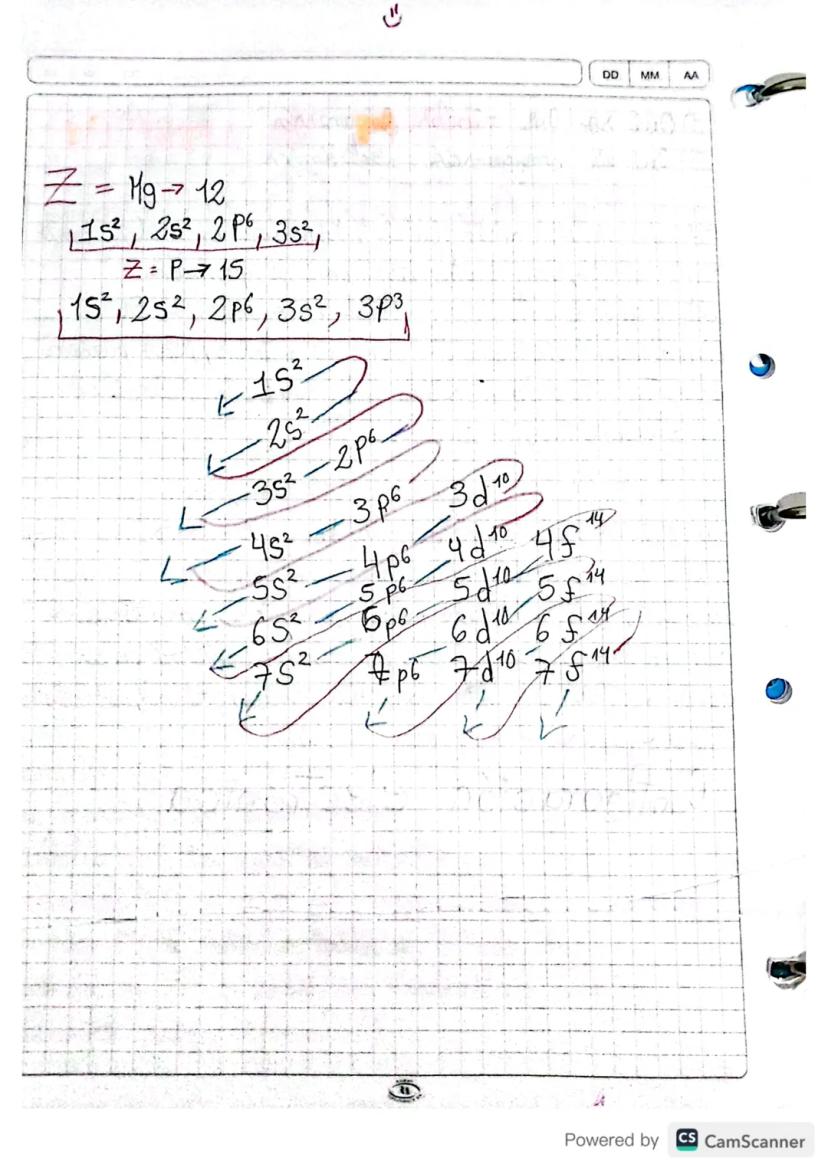 DD MM AA
Z = Mg → 12
1s², 2s², 2p⁶, 3s²,
Z = P → 15
1s², 2s², 2p⁶, 3s², 3p³
1s²
2s²
2p⁶
3s²
3p⁶ 3d¹⁰
4s² 4p⁶ 4d¹⁰ 4f¹⁴
5s² 5p⁶ 5d¹⁰ 5f¹⁴
6s² 6p⁶ 6d¹⁰ 6f¹⁴
7s² 7p⁶ 7d¹⁰ 7f¹⁴
Powered by CS CamScanner